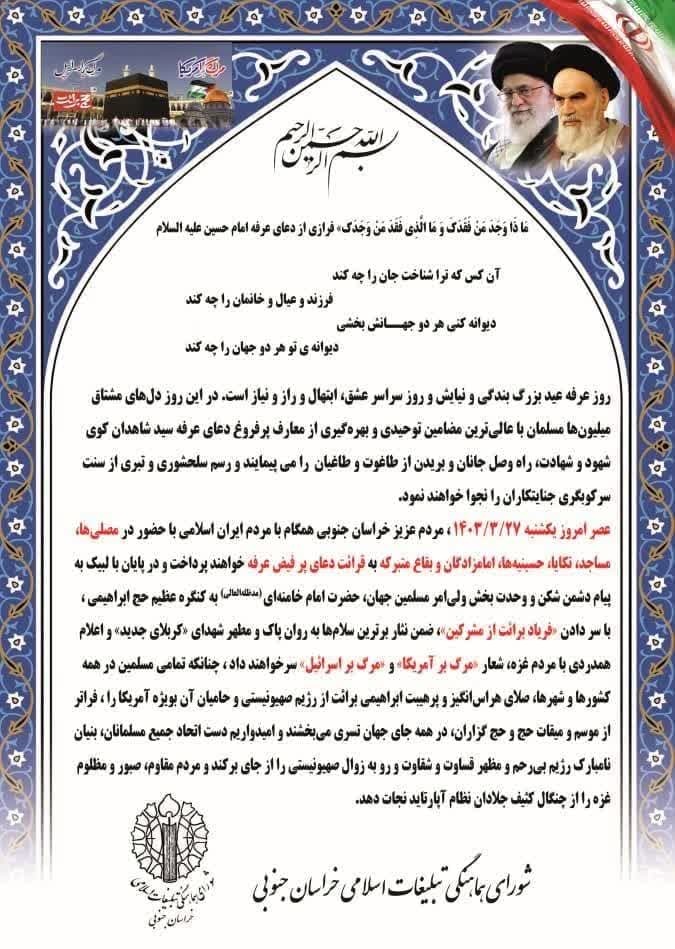 مرگ بر اسرائیل
مرگ بر آمریکا
بسم الله الرحمن الرحیم
مَا ذَا وَجَدَ مَنْ فَقَدَکَ وَ مَا الَّذِی فَقَدَ مَنْ وَجَدَکَ» فرازی از دعای عرفه امام حسین علیه السلام
آن کس که ترا شناخت جان را چه کند
فرزند و عیال و خانمان را چه کند
دیوانه کنی هر دو جهـــانش بخشی
دیوانه ی تو هر دو جهان را چه کند
روز عرفه عید بزرگ بندگی و نیایش و روز سراسر عشق، ابتهال و راز و نیاز است. در این روز دل‌های مشتاق
میلیون‌ها مسلمان با عالی‌ترین مضامین توحیدی و بهره‌گیری از معارف پرفروغ دعای عرفه سید شاهدان کوی
شهود و شهادت، راه وصل جانان و بریدن از طاغوت و طاغیان را می پیمایند و رسم سلحشوری و تبری از سنت
سرکوبگری جنایتکاران را نجوا خواهند نمود.
عصر امروز یکشنبه ۱۴۰۳/۳/۲۷ ، مردم عزیز خراسان جنوبی همگام با مردم ایران اسلامی با حضور در مصلی‌ها،
مساجد، تکایا، حسینیه‌ها، امامزادگان و بقاع متبرکه به قرائت دعای پر فیض عرفه خواهند پرداخت و در پایان با لبیک به
پیام دشمن شکن و وحدت بخش ولی‌امر مسلمین جهان، حضرت امام خامنه‌ای (مدظله‌العالی) به کنگره عظیم حج ابراهیمی ،
با سر دادن «فریاد برائت از مشرکین»، ضمن نثار برترین سلام‌ها به روان پاک و مطهر شهدای «کربلای جدید» و اعلام
همدردی با مردم غزه، شعار «مرگ بر آمریکا» و «مرگ بر اسرائیل» سرخواهند داد ، چنانکه تمامی مسلمین در همه
کشورها و شهرها، صلای هراس‌انگیز و پرهیبت ابراهیمی برائت از رژیم صهیونیستی و حامیان آن بویژه آمریکا را ، فراتر
از موسم و میقات حج و حج گزاران، در همه جای جهان تسری می‌بخشند و امیدواریم دست اتحاد جمیع مسلمانان، بنیان
نامبارک رژیم بی‌رحم و مظهر قساوت و شقاوت و رو به زوال صهیونیستی را از جای برکند و مردم مقاوم، صبور و مظلوم
غزه را از چنگال کثیف جلادان نظام آپارتاید نجات دهد.
شورای هماهنگی تبلیغات اسلامی خراسان جنوبی
شورای هماهنگی تبلیغات اسلامی
خراسان جنوبی